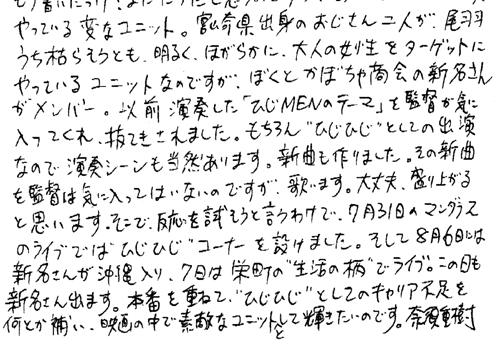 やっている変なユニット。宮崎県出身のおじさん二人が、尾羽
うち枯らそうとも、明るく、ほがらかに、大人の女性をターゲットに
やっているユニットなのですが、ぼくとかぼちゃ商会の新名さん
がメンバー。以前演奏した「ひじMENのテーマ」を監督が気に
入ってくれ、抜てきされました。もちろん"ひじひじ"としての出演
なので演奏シーンも当然あります。新曲も作りました。その新曲
を監督は気に入ってはいないのですが、歌います。大丈夫、盛り上がる
と思います。そこで、反応を試そうと言うわけで、7月31日のマングラス
のライブでは"ひじひじ"コーナーを設けました。そして8月6日には
新名さんが沖縄入り、7日は栄町の"生活の柄"でライブ。この日も
新名さん出ます。本番を重ねて、"ひじひじ"としてのキャリア不足を
何とか補い、映画の中で素敵なユニットとして輝きたいのです。奈須重樹